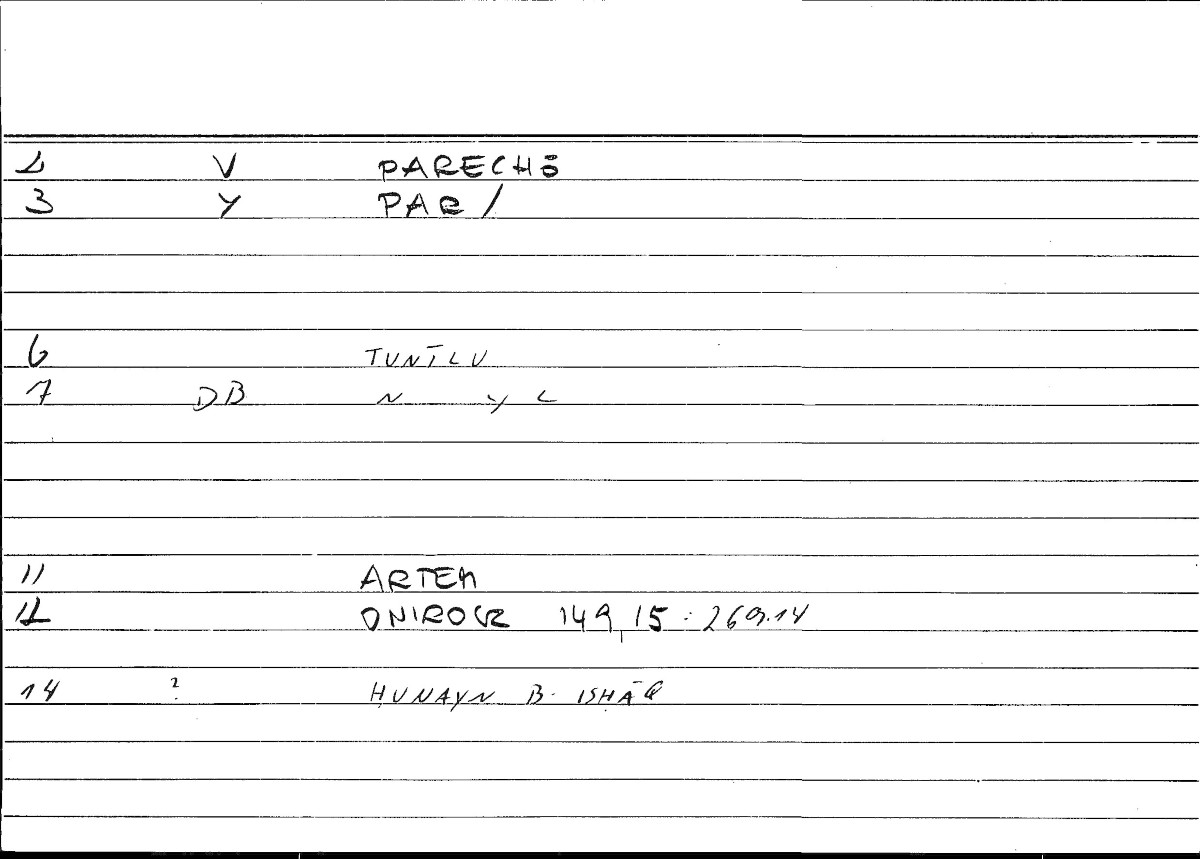 2 V PARECHŌ
3 Y PAR /
6 TUNĪLU
7 DB N Y L
11 ARTEM
12 ONIROCR 149,15 : 269.14
14 ? ḤUNAYN B. ISḤĀQ